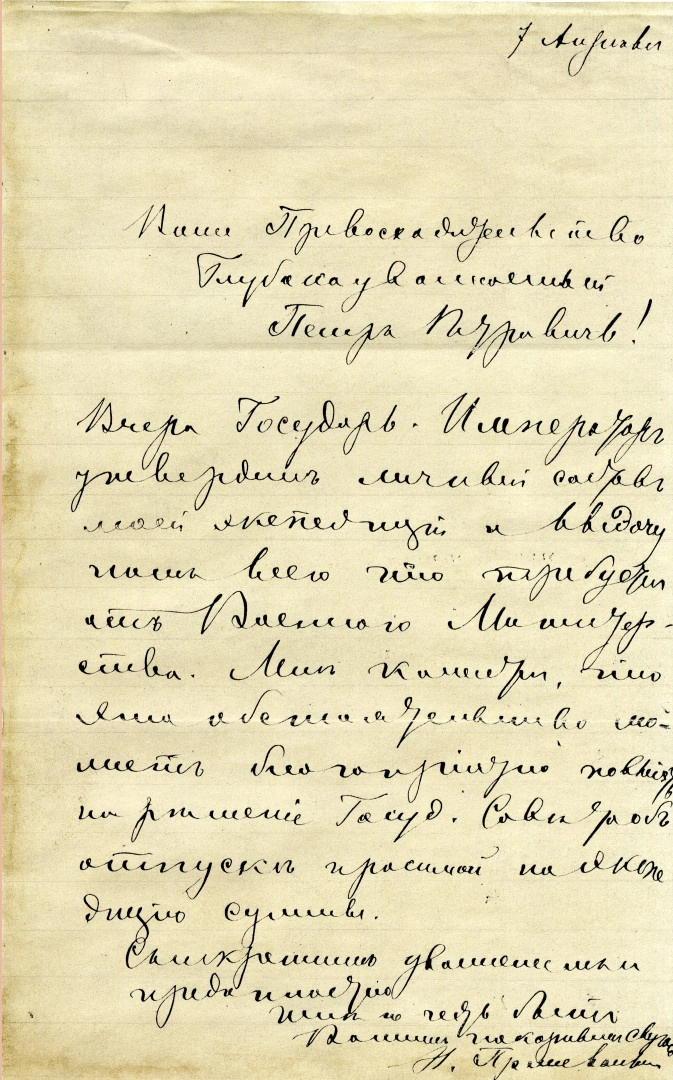 7 Апрѣля
Ваше Превосходительство
Глубокоуважаемый
Петръ Петровичъ!
Вчера Государь Императоръ
утвердилъ личный составъ
моей экспедиціи и выдачу
намъ всего что требуемъ
отъ Военнаго Министер-
ства. Мнѣ кажется, что
это обстоятельство мо-
жетъ благопріятно повліять
на рѣшеніе Госуд. Совѣта объ
отпускѣ просимой на экспе
дицію суммы.
Съ искреннимъ уваженіемъ и
преданностію
имѣю честь быть
Вашимъ покорнымъ слугою
Н. Пржевальскій